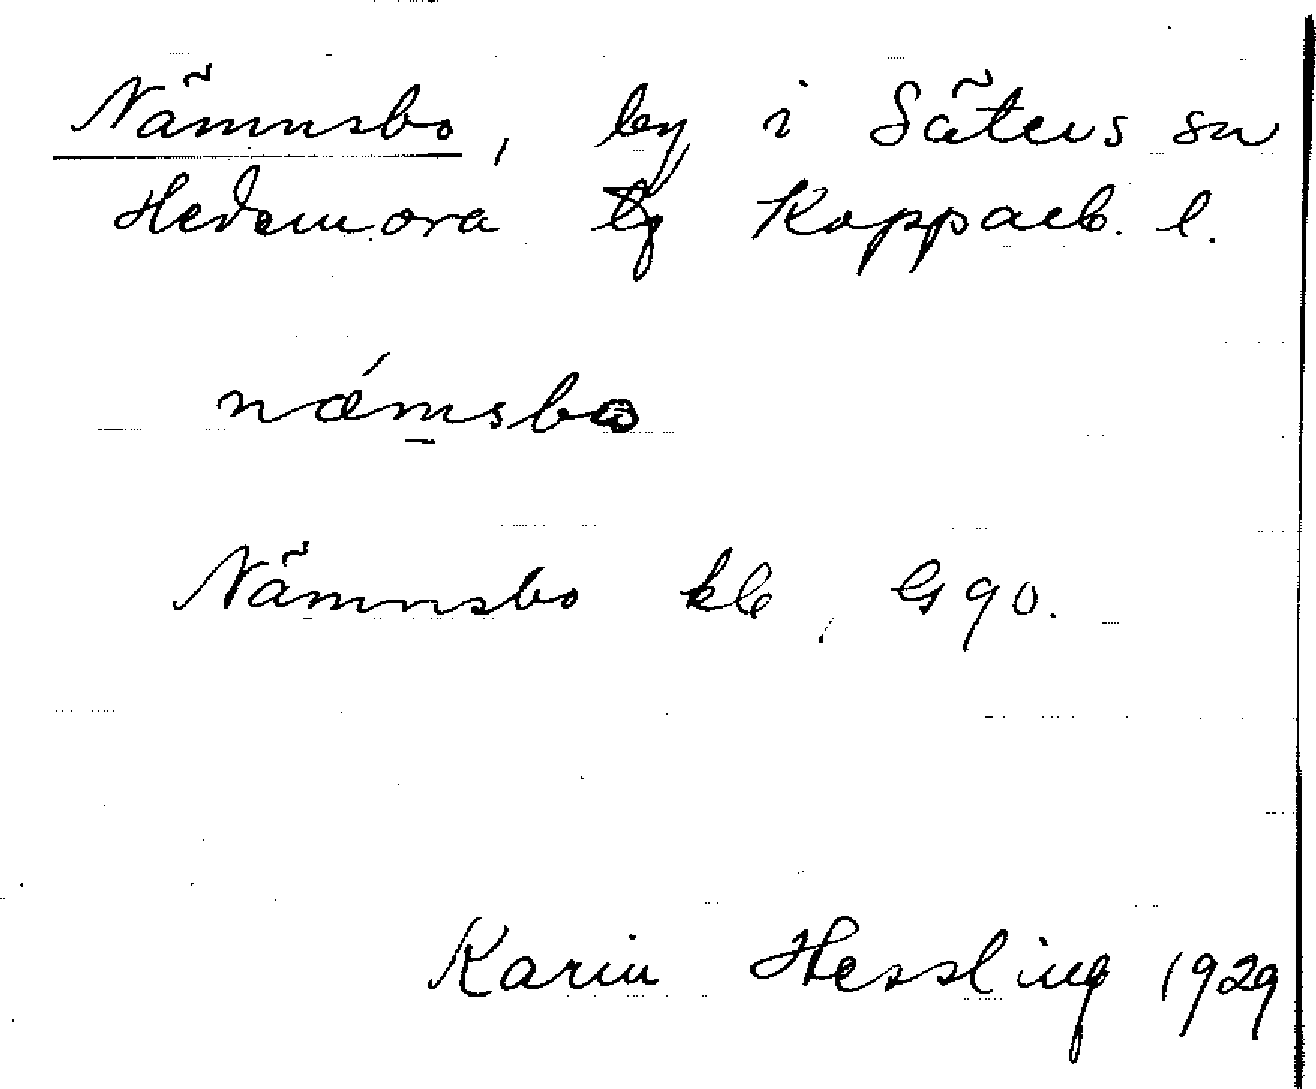 Nämnsbo, by i Säters sn
Hedemora tg Kopparb. l.
nǽmsbo
Nämnsbo kb, G 90.
Karin Hessling 1929